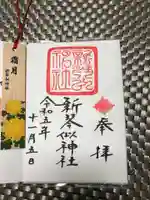 奉拝
新琴似神社
令和五年
十一月五日
新琴似神社
霜月